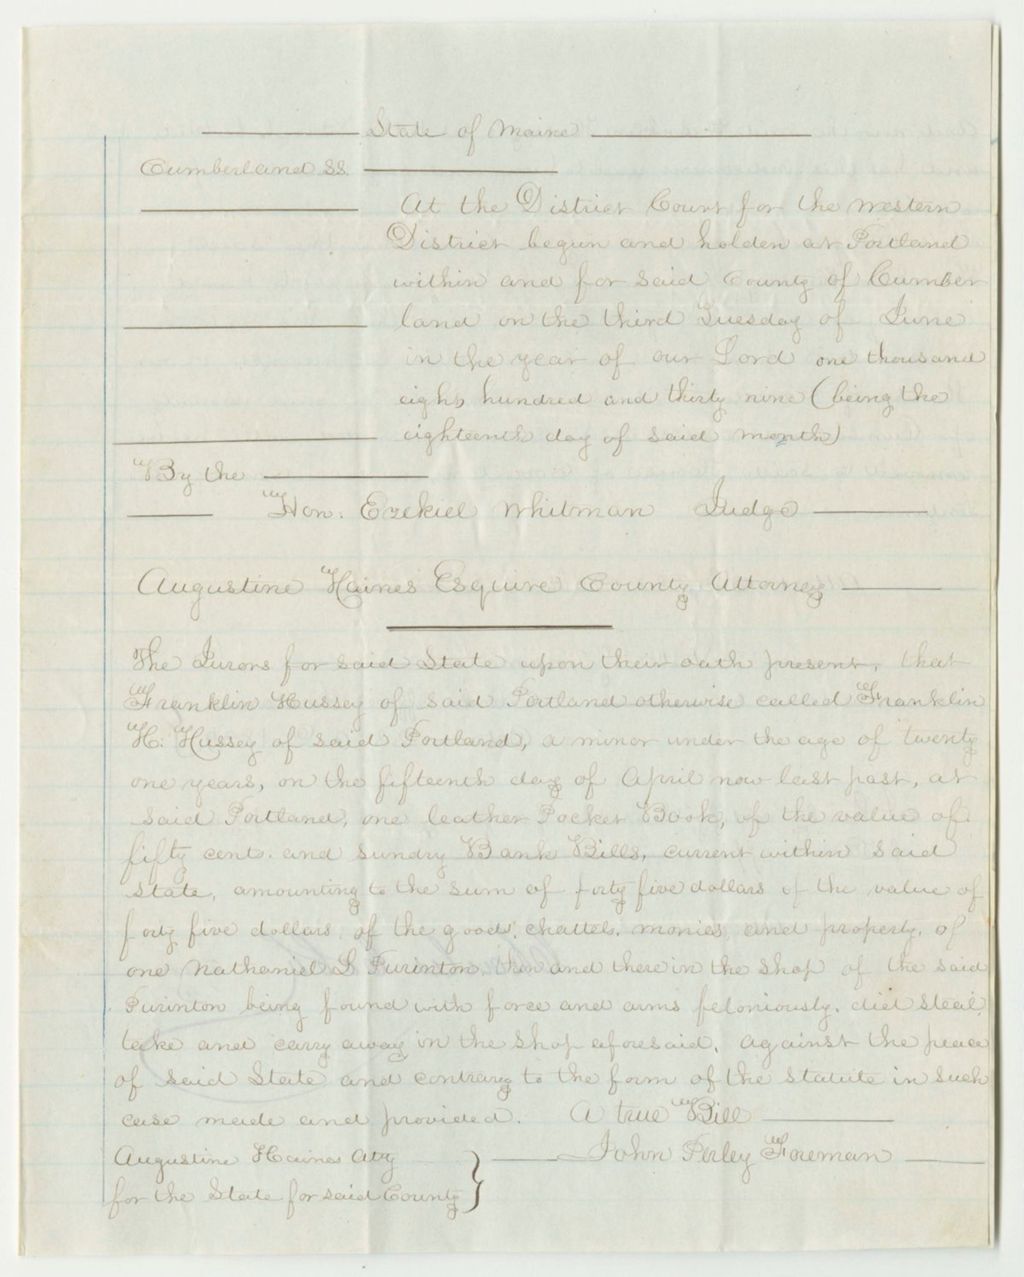 State of Maine
Cumberland SS.
At the District Court for the Western
District begun and holden at Portland
within and for said County of Cumber
land on the third Tuesday of June
in the year of our Lord one thousand
eight hundred and thirty nine (being the
eighteenth day of said month)
By the
Hon. Ezekiel Whitman Judge
Augustine Haines Esquire County Attorney
The Jurors for said State upon their oath present, that
Franklin Hussey of said Portland otherwise called Franklin
H. Hussey of said Portland, a minor under the age of twenty
one years, on the fifteenth day of April now last past, at
said Portland, one leather Pocket Book, of the value of
fifty cent. and sundry Bank Bills, current within said
State, amounting to the sum of forty five dollars of the value of
forty five dollars, of the goods, chattels, monies and property, of
one Nathaniel L Purinton then and there in the shop of the said
Purinton being found with force and arms feloniously, did steal,
take and carry away in the shop aforesaid, against the peace
of said State and contrary to the form of the statute in such
case made and provided. A true Bill
Augustine Haines Atty John Perley Foreman
for the State for said County